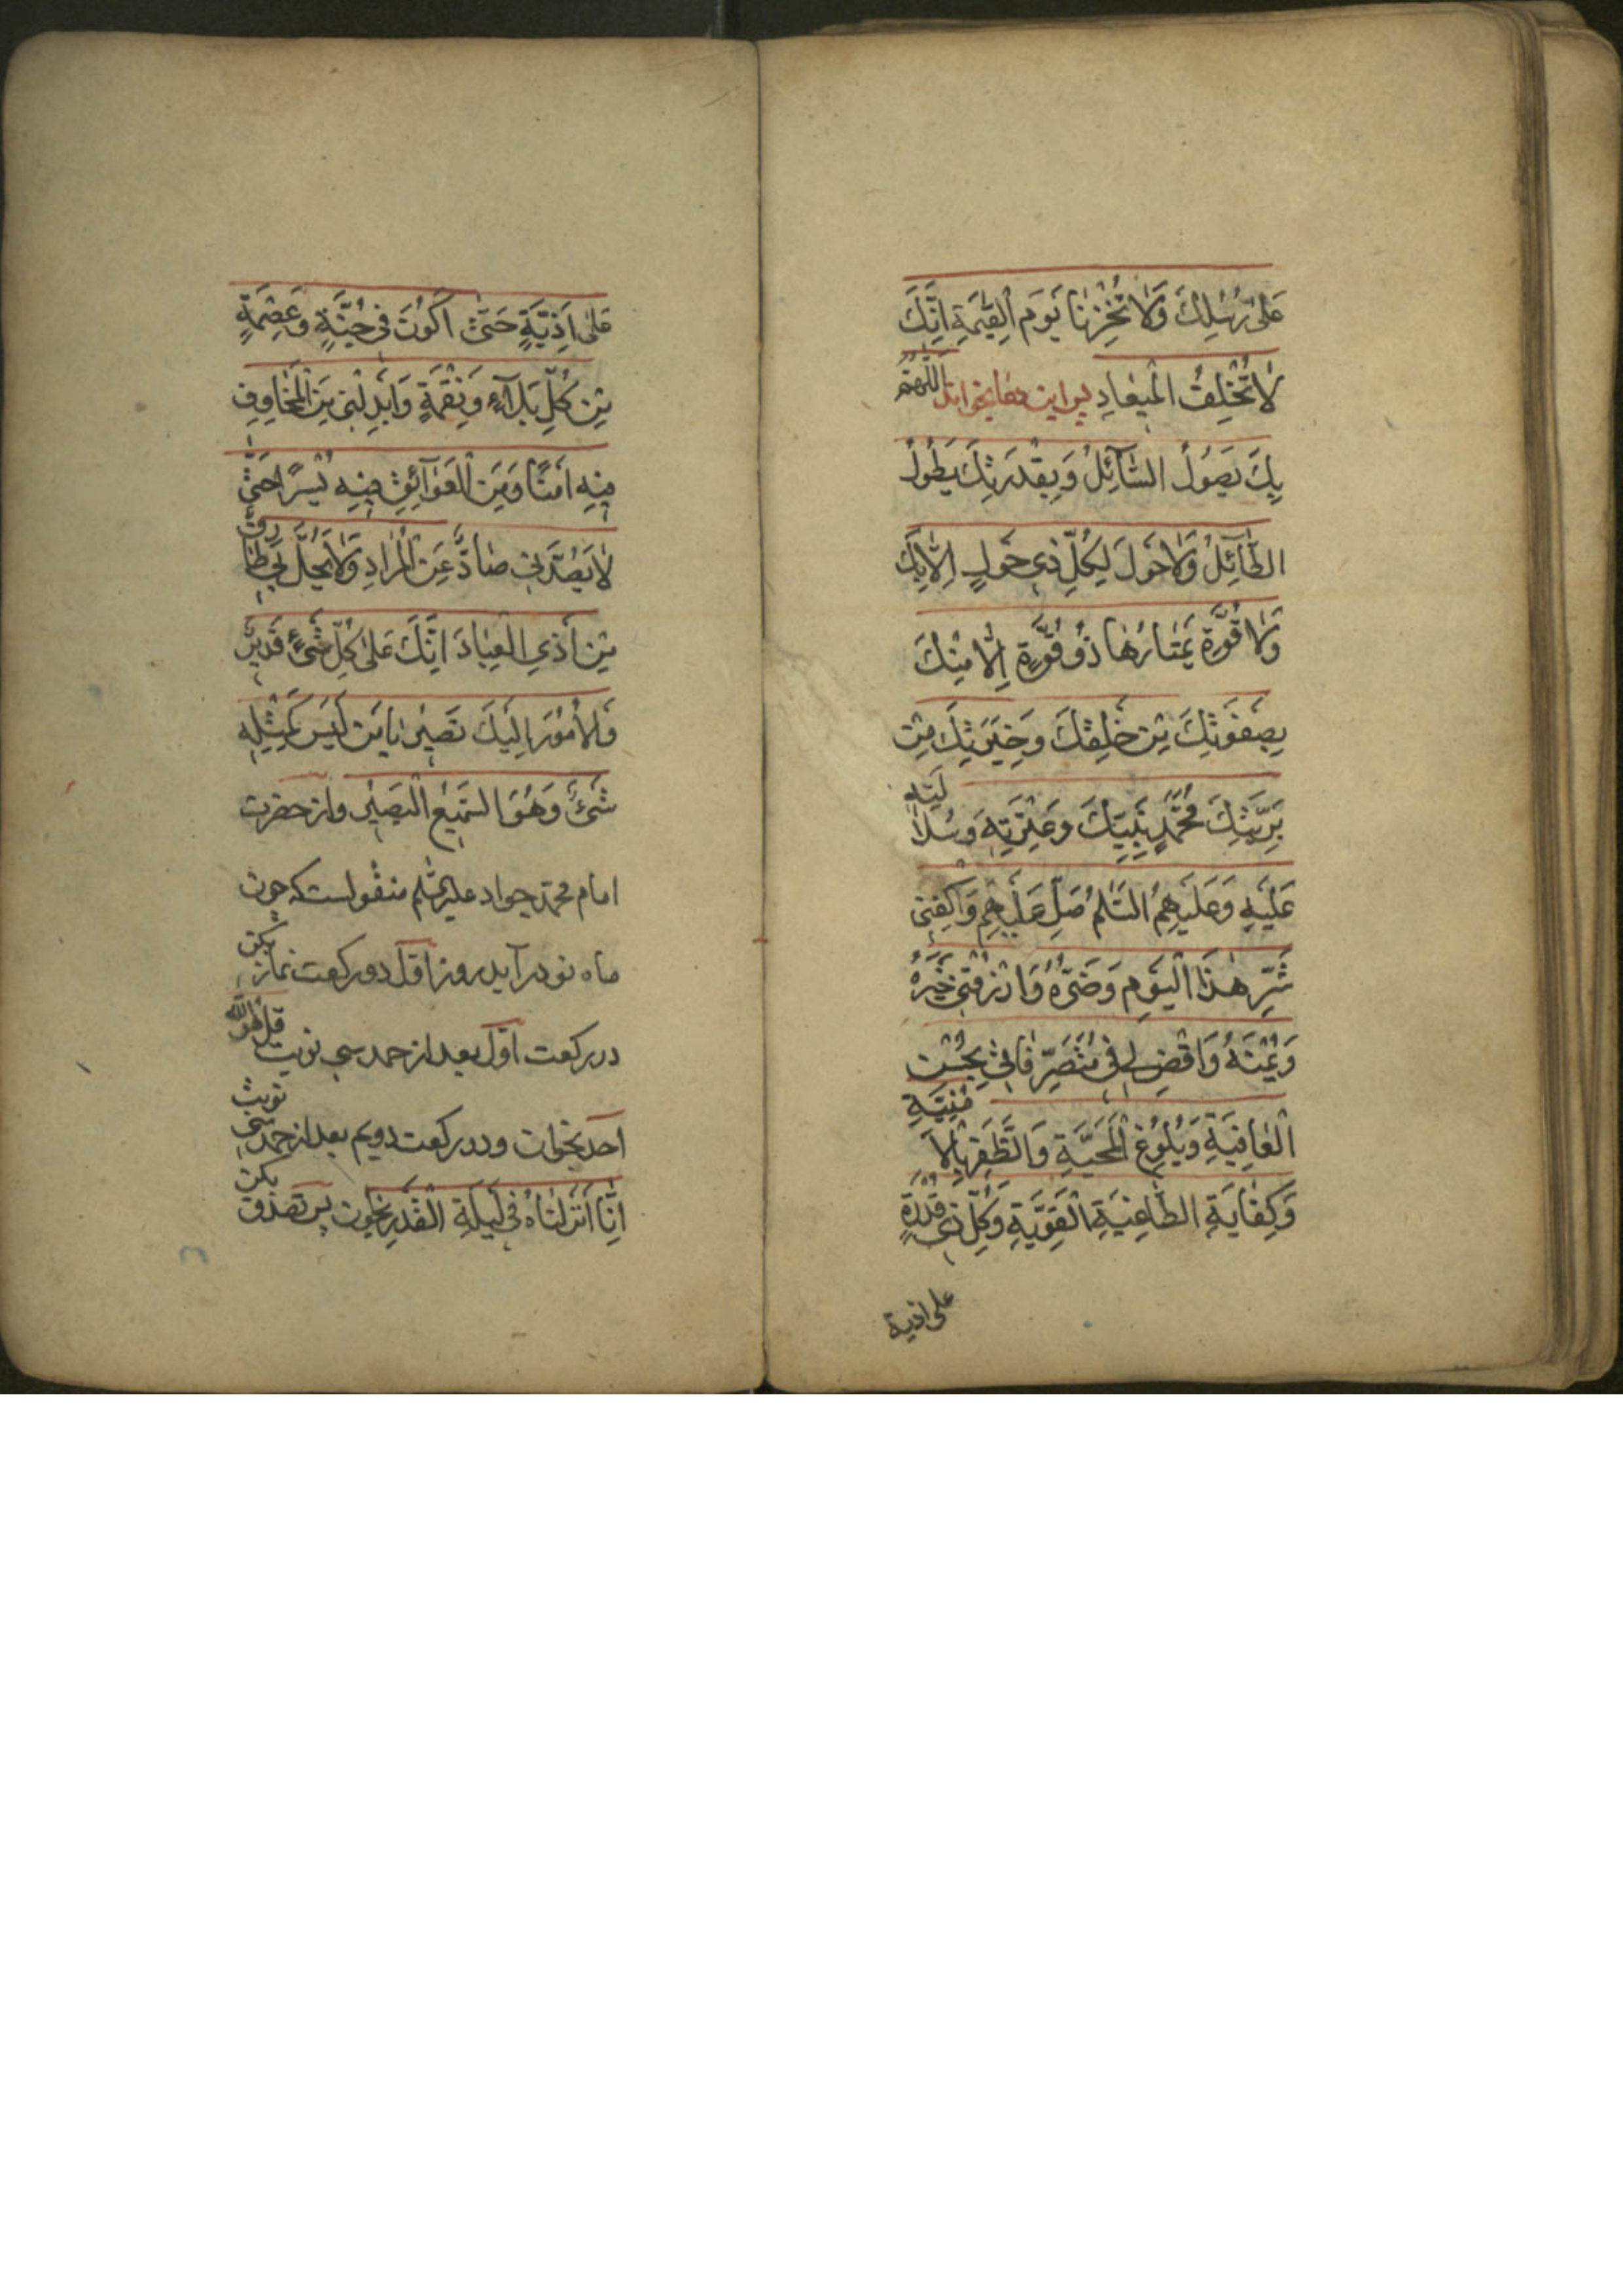 عَلىٰ رُسُلِكَ وَلاٰ تُخْزِنٰا يَوْمَ الْقِيٰمَةِ اِنَّكَ
لاٰ تُخْلِفُ الْمِيعٰادِ پس اين دعا بخواند اَللّٰهُمَّ
بِكَ يَصُولُ السّٰآئِلُ وَبِقُدْرَتِكَ يَطُولُ
الطّٰآئِلُ وَلاٰ حَوْلَ لِكُلِّ ذي حَوْلٍ اِلاّٰ بِكَ
وَلاٰ قُوَّةَ يَمْتٰارُهٰا ذُو قُوَّةٍ اِلاّٰ مِنْكَ
بِصَفْوَتِكَ مِنْ خَلْقِكَ وَخِيَرَتِكَ مِنْ
بَرِيَّتِكَ مُحَمَّدٍ نَبِيِّكَ وَعِتْرَتِهِ وَسُلاٰلَتِهِ
عَلَيْهِ وَعَلَيْهِمُ السَّلٰمُ صَلِّ عَلَيْهِمْ وَاكْفِنى
شَرَّ هٰذَا الْيَوْمِ وَضَرَّهُ وَارْزُقْنى خَيْرَهُ
وَيُمْنَهُ وَاقْضِ لى فى مُتَصَرِّفٰاتى بِحُسْنِ
الْعٰافِيَةِ وَبُلُوغِ الْمَحَبَّةِ وَالظَّفَرِ بِالْاُمْنِيَّةِ
وَكِفٰايَةِ الطّٰاغِيَةِ الْقَوِيَّةِ وَكُلِّ ذى قُدْرَةٍ
على اذية
عَلىٰ اَذِيَّةٍ حَتّىٰ اَكُونَ فى جُنَّةٍ وَعِصْمَةٍ
مِنْ كُلِّ بَلآءٍ وَنِقْمَةٍ وَاَبْدِلْنى مِنَ الْمَخٰاوِفِ
فيهِ اَمْنًا وَمِنَ الْعَوٰآئِقِ فيهِ يُسْرًا حَتّىٰ
لاٰ يَصُدَّنى صٰادٌّ عَنِ الْمُرٰادِ وَلاٰ يَحُلَّ بى طٰارِقٌ
مِنْ اَذَي الْعِبٰادِ اِنَّكَ عَلىٰ كُلِّ شَىْءٍ قَديرٌ
وَالْاُمُورَ اِلَيْكَ تَصيرُ يٰا مَنْ لَيْسَ كَمِثْلِهِ
شَىْءٌ وَهُوَ السَّميعُ الْبَصيرُ واز حضرت
امام محمد جواد عليه السلم منقولست كه چون
ماه نو درآيد روز اوّل دو ركعت نماز بكن
در ركعت اوّل بعد از حمد سى نوبت قل هو الله
احد بخوان ودر ركعت دويم بعد از حمد سى نوبت
اِنّٰا اَنْزَلْنٰاهُ فى لَيْلَةِ الْقَدْرِ بخوان پس تصدق بكن